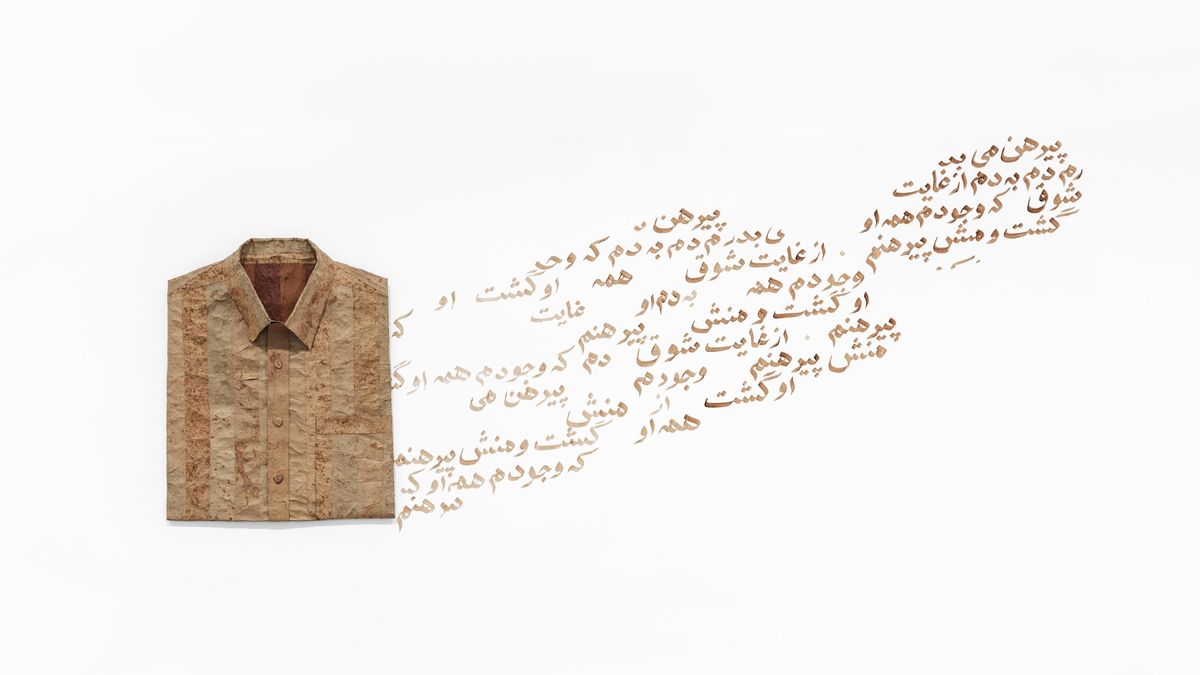 پیرهن می بد
رم دم به دم از غایت
شوق که وجودم همه او
گشت و منش پیرهنم
پیرهن
ی بدرم دم به دم که وجد
از غایت شوق همه او گشت او
وجودم همه به دم او غایت که
او گشت و منش پیرهنم
پیرهنم از غایت شوق دم که وجودم همه او گ
منش پیرهنم وجودم پیرهن می
او گشت از منش
همه او گشت و منش پیرهنم
که وجودم همه او
یرهنم